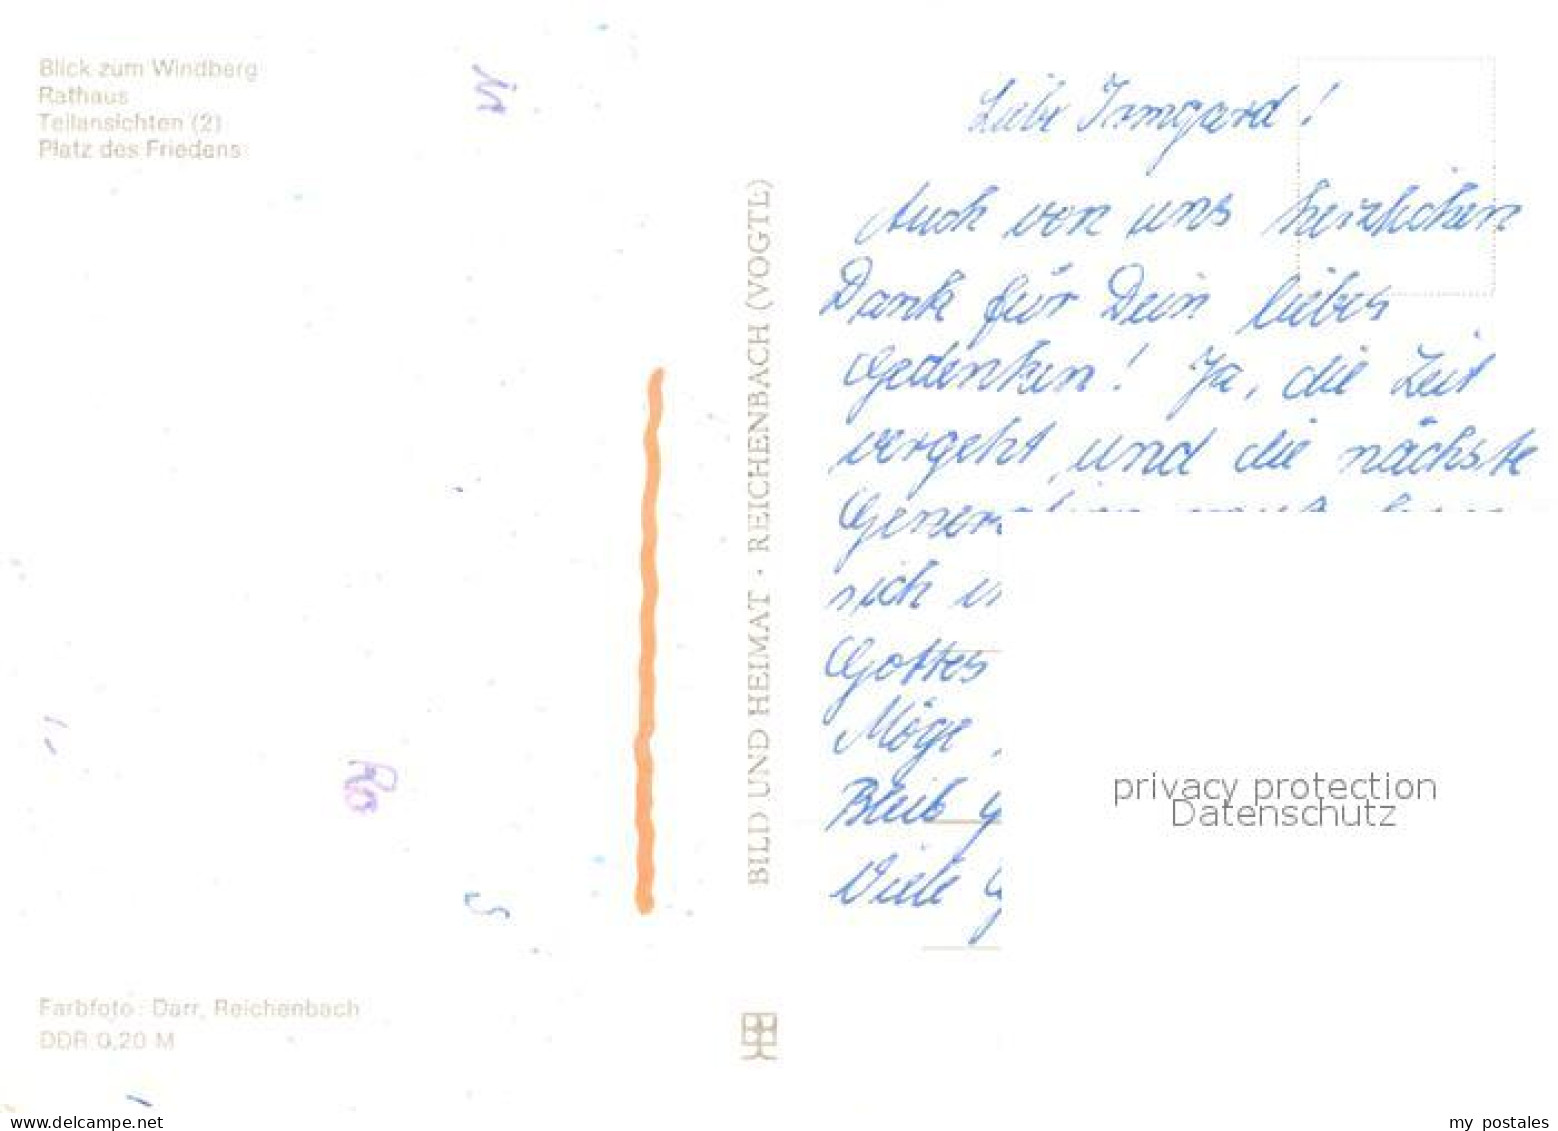 Blick zum Windberg
Rathaus
Teilansichten (2)
Platz des Friedens
BILD UND HEIMAT · REICHENBACH (VOGTL)
Farbfoto: Darr, Reichenbach
DDR 0,20 M
Liebe Irmgard!
Auch von uns herzlichen
Dank für Dein liebes
Gedenken! Ja, die Zeit
vergeht und die nächste
sich
Gottes
Möge
Bleib
Viele
privacy protection
Datenschutz
www.delcampe.net
my_postales